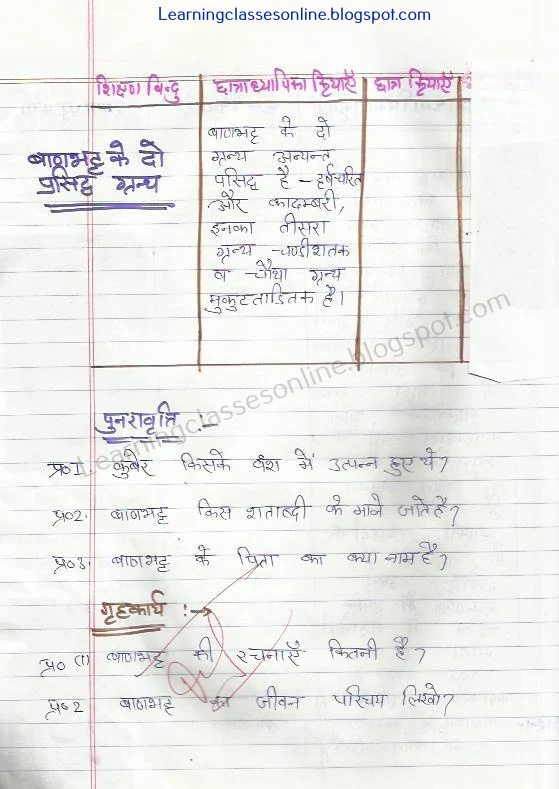 Learningclassesonline.blogspot.com
शिक्षण बिन्दु छात्राध्यापिका क्रियाएँ छात्र क्रियाएँ
बाणभट्ट के दो
प्रसिद्व ग्रन्थ
बाणभट्ट के दो
ग्रन्थ अन्यन्त
पसिद्व है - हर्षचरित
और कादम्बरी,
इनका तीसरा
ग्रन्थ - चण्डीशतक
व - चौथा ग्रन्थ
मुकुटताडितक है।
Learningclassesonline.blogspot.com
पुनरावृत्ति :-
प्र०1. कुबेर किसके वंश में उत्पन्न हुए थे?
प्र०2. बाणभट्ट किस शताब्दी के माने जाते है?
प्र०3. बाणभट्ट के पिता का क्या नाम है?
गृहकार्य :-
प्र० (1) बाणभट्ट की रचनाएँ कितनी है?
प्र०2 बाणभट्ट का जीवन परिचय लिखो?